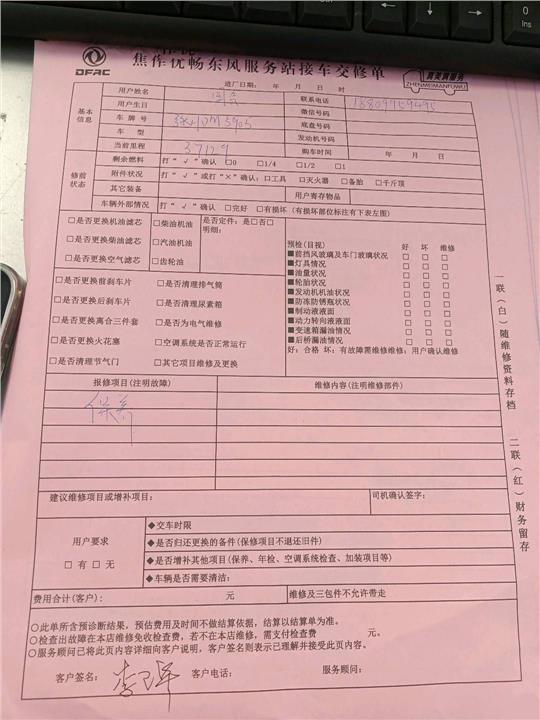 DFAC
焦作优畅东风服务站接车交修单
真美满服务
ZHENMEIMANFUWU
进厂日期: 年 月 日 时
基本信息
用户姓名
联系电话
用户生日
微信号码
车牌号
底盘号码
车型
发动机号码
当前里程 37129
购车时间 年 月 日
修前状态
剩余燃料 打“√”确认 □0 □1/4 □1/2 □1
附件状况 打“√”或打“×”确认:□工具 □灭火器 □备胎 □千斤顶
其它装备
用户寄存物品
车辆外部情况 打“√”确认 □完好 □有损坏(有损坏部位标注有下表左图)
□是否更换机油滤芯 □柴油机油 是否定件:是□否□
明细:
□是否更换柴油滤芯 □汽油机油
□是否更换空气滤芯 □齿轮油
预检(目视) 好 坏 维修
■前挡风玻璃及车门玻璃状况 □ □ □
■灯具情况 □ □ □
■油量状况 □ □ □
■轮胎状况 □ □ □
■发动机机油状况 □ □ □
■防冻防锈瓶状况 □ □ □
■制动液液面 □ □ □
■动力转向液液面 □ □ □
■变速箱漏油情况 □ □ □
■后桥漏油情况 □ □ □
好:合格 坏:有故障需维修维修:用户确认维修
□是否更换前刹车片 □是否清理排气筒
□是否更换后刹车片 □是否清理尿素箱
□是否更换离合三件套 □是否为电气维修
□是否更换火花塞 □空调系统是否正常运行
□是否清理节气门 □其它项目维修及更换
报修项目(注明故障) 维修内容(注明维修部件)
保养
建议维修项目或增补项目:
司机确认签字:
用户要求
□有 □无
◆交车时限
◆是否归还更换的备件(保修项目不退还旧件)
◆是否增补其他项目(保养、年检、空调系统检查、加装项目等)
◆车辆是否需要清洁:
费用合计(客户): 元
维修及三包件不允许带走
○此单所含预诊断结果,预估费用及时间不做结算依据,结算以结算单为准。
○检查出故障在本店维修免收检查费,若不在本店维修,需支付检查费 元。
○服务顾问已将此页内容详细向客户说明,客户签名则表示已理解并接受此页内容。
客户签名: 客户电话: 服务顾问:
一联(白)随维修资料存档
二联(红)财务留存
Ctrl
Ins